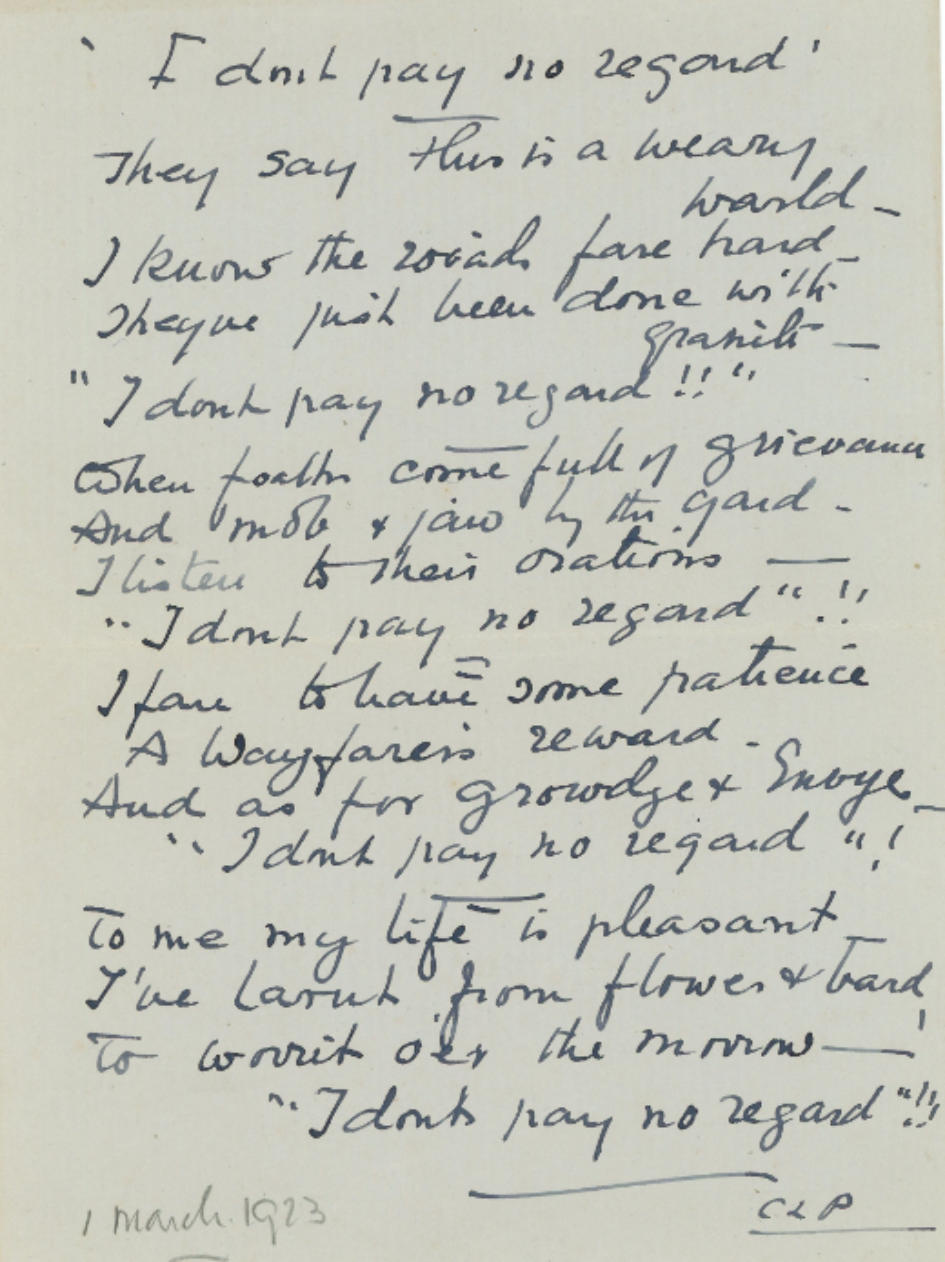 ' I dont pay no regard '
They say this is a weary
warld -
I know the roads fare hard -
Theyve just been done with
granite -
" I dont pay no regard !! "
When foalks come full of grievance
And mob & jaw by the yard -
I listen to their orations -
" I dont pay no regard " !!
I fare to have some patience
A Wayfarers reward -
And as for growdge & Envye -
" I dont pay no regard " !
To me my life is pleasant -
I've larnt from flower & bard,
To worrit o'er the morrow -
" I dont pay no regard " !!
1 March 1923
CLP